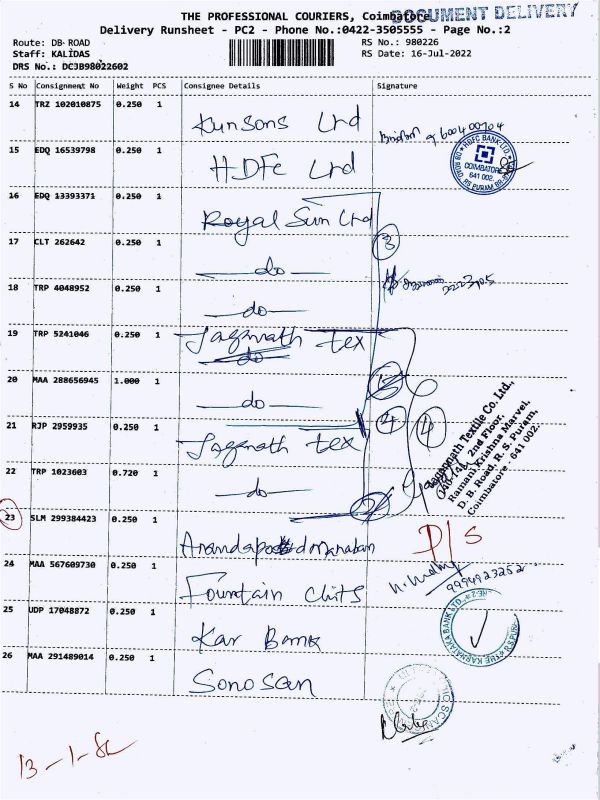 THE PROFESSIONAL COURIERS, Coimbatore
DOCUMENT DELIVERY
Delivery Runsheet - PC2 - Phone No.:0422-3505555 - Page No.:2
Route: DB ROAD
RS No.: 980226
Staff: KALIDAS
RS Date: 16-Jul-2022
DRS No.: DCJB98022602
S No Consignment No Weight PCS Consignee Details Signature
14 TRZ 102010875 0.250 1
Kunsons Ltd
15 EDQ 16539798 0.250 1
HDFC Ltd
HDFC BANK LTD
COIMBATORE
641 002.
16 EDQ 13393371 0.250 1
Royal Sun Ltd
17 CLT 262642 0.250 1
do
3
18 TRP 4048952 0.250 1
do
19 TRP 5241046 0.250 1
Jagannath tex
do
20 MAA 288656945 1.000 1
do
21 RJP 2959935 0.250 1
Jagannath tex
4
4
Jagannath Textile Co. Ltd.,
2nd Floor,
Ramani Krishna Marvel,
D. B. Road, R. S. Puram,
Coimbatore - 641 002.
22 TRP 1023603 0.720 1
do
23 SLM 299384423 0.250 1
D/S
24 MAA 567609730 0.250 1
Fountain Chits
9994923252
25 UDP 17048872 0.250 1
Kar Bank
THE KARNATAKA BANK LTD.
26 MAA 291489014 0.250 1
Sonoscan
13-1-